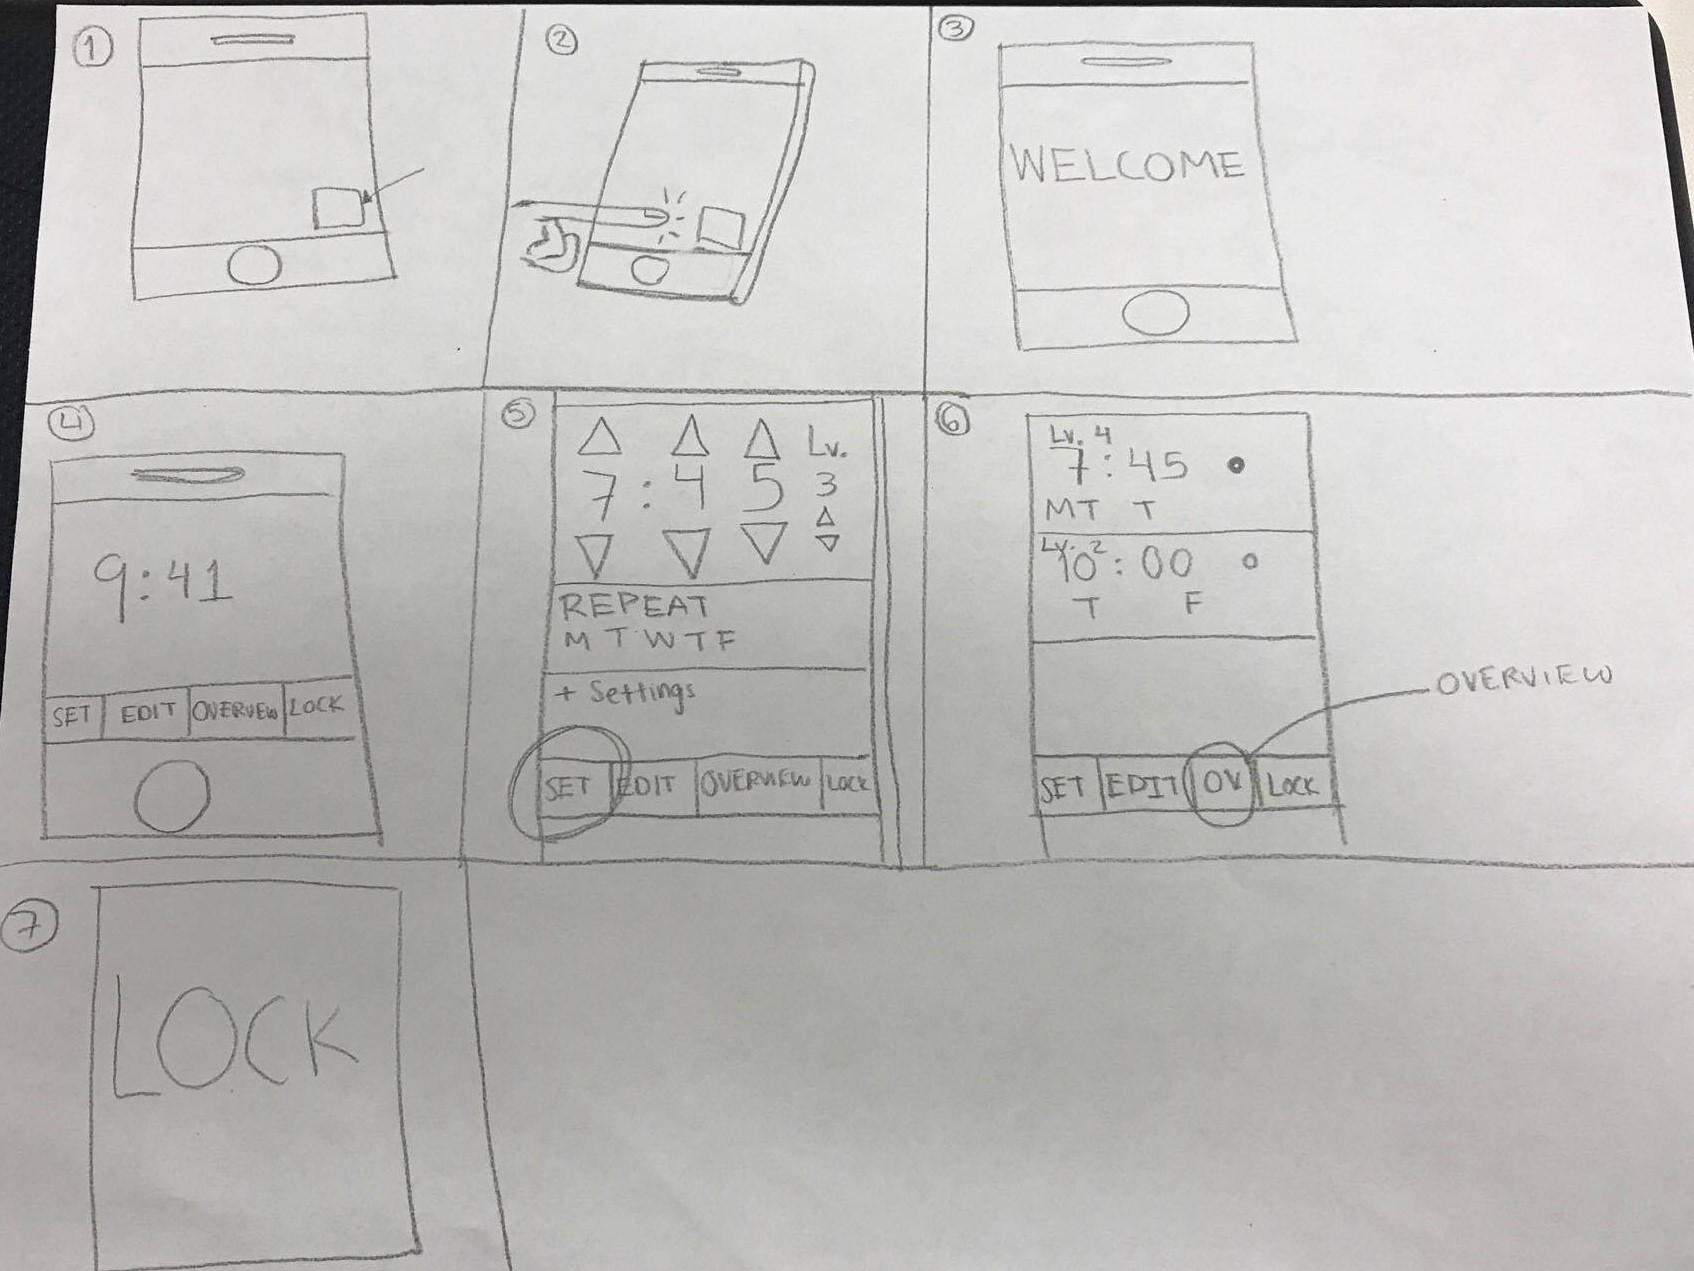 1
2
3
WELCOME
4
9:41
SET EDIT OVERVIEW LOCK
5
Lv.
7:45 3
REPEAT
M T W T F
+ Settings
SET EDIT OVERVIEW LOCK
6
Lv. 4
7:45
M T T
Lv. 2
10:00
T F
OVERVIEW
SET EDIT OV LOCK
7
LOCK